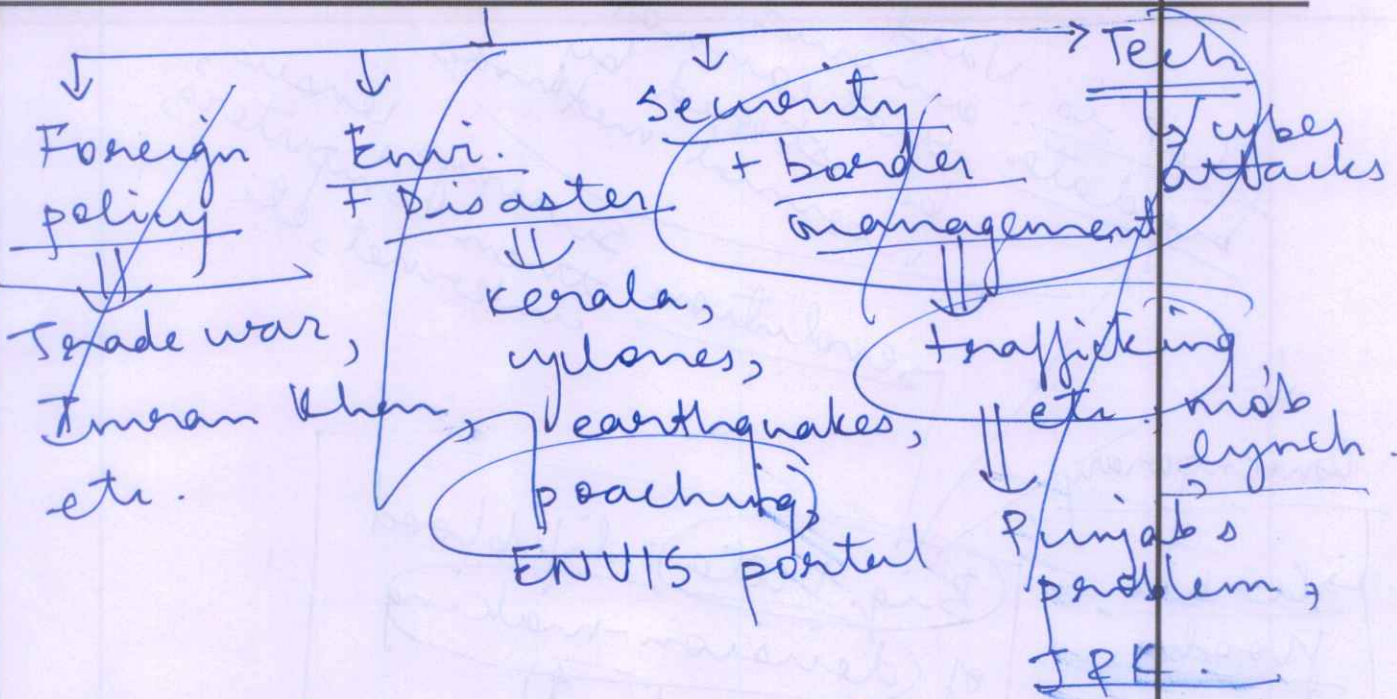 Foreign
policy
Trade war,
Imran Khan
etc.
Envi.
+ Disaster
Kerala,
cyclones,
earthquakes,
poaching,
ENVIS portal
security
+ border
management
trafficking
etc.
Punjab's
problem,
J&K.
Tech
cyber
attacks
mob
lynch.